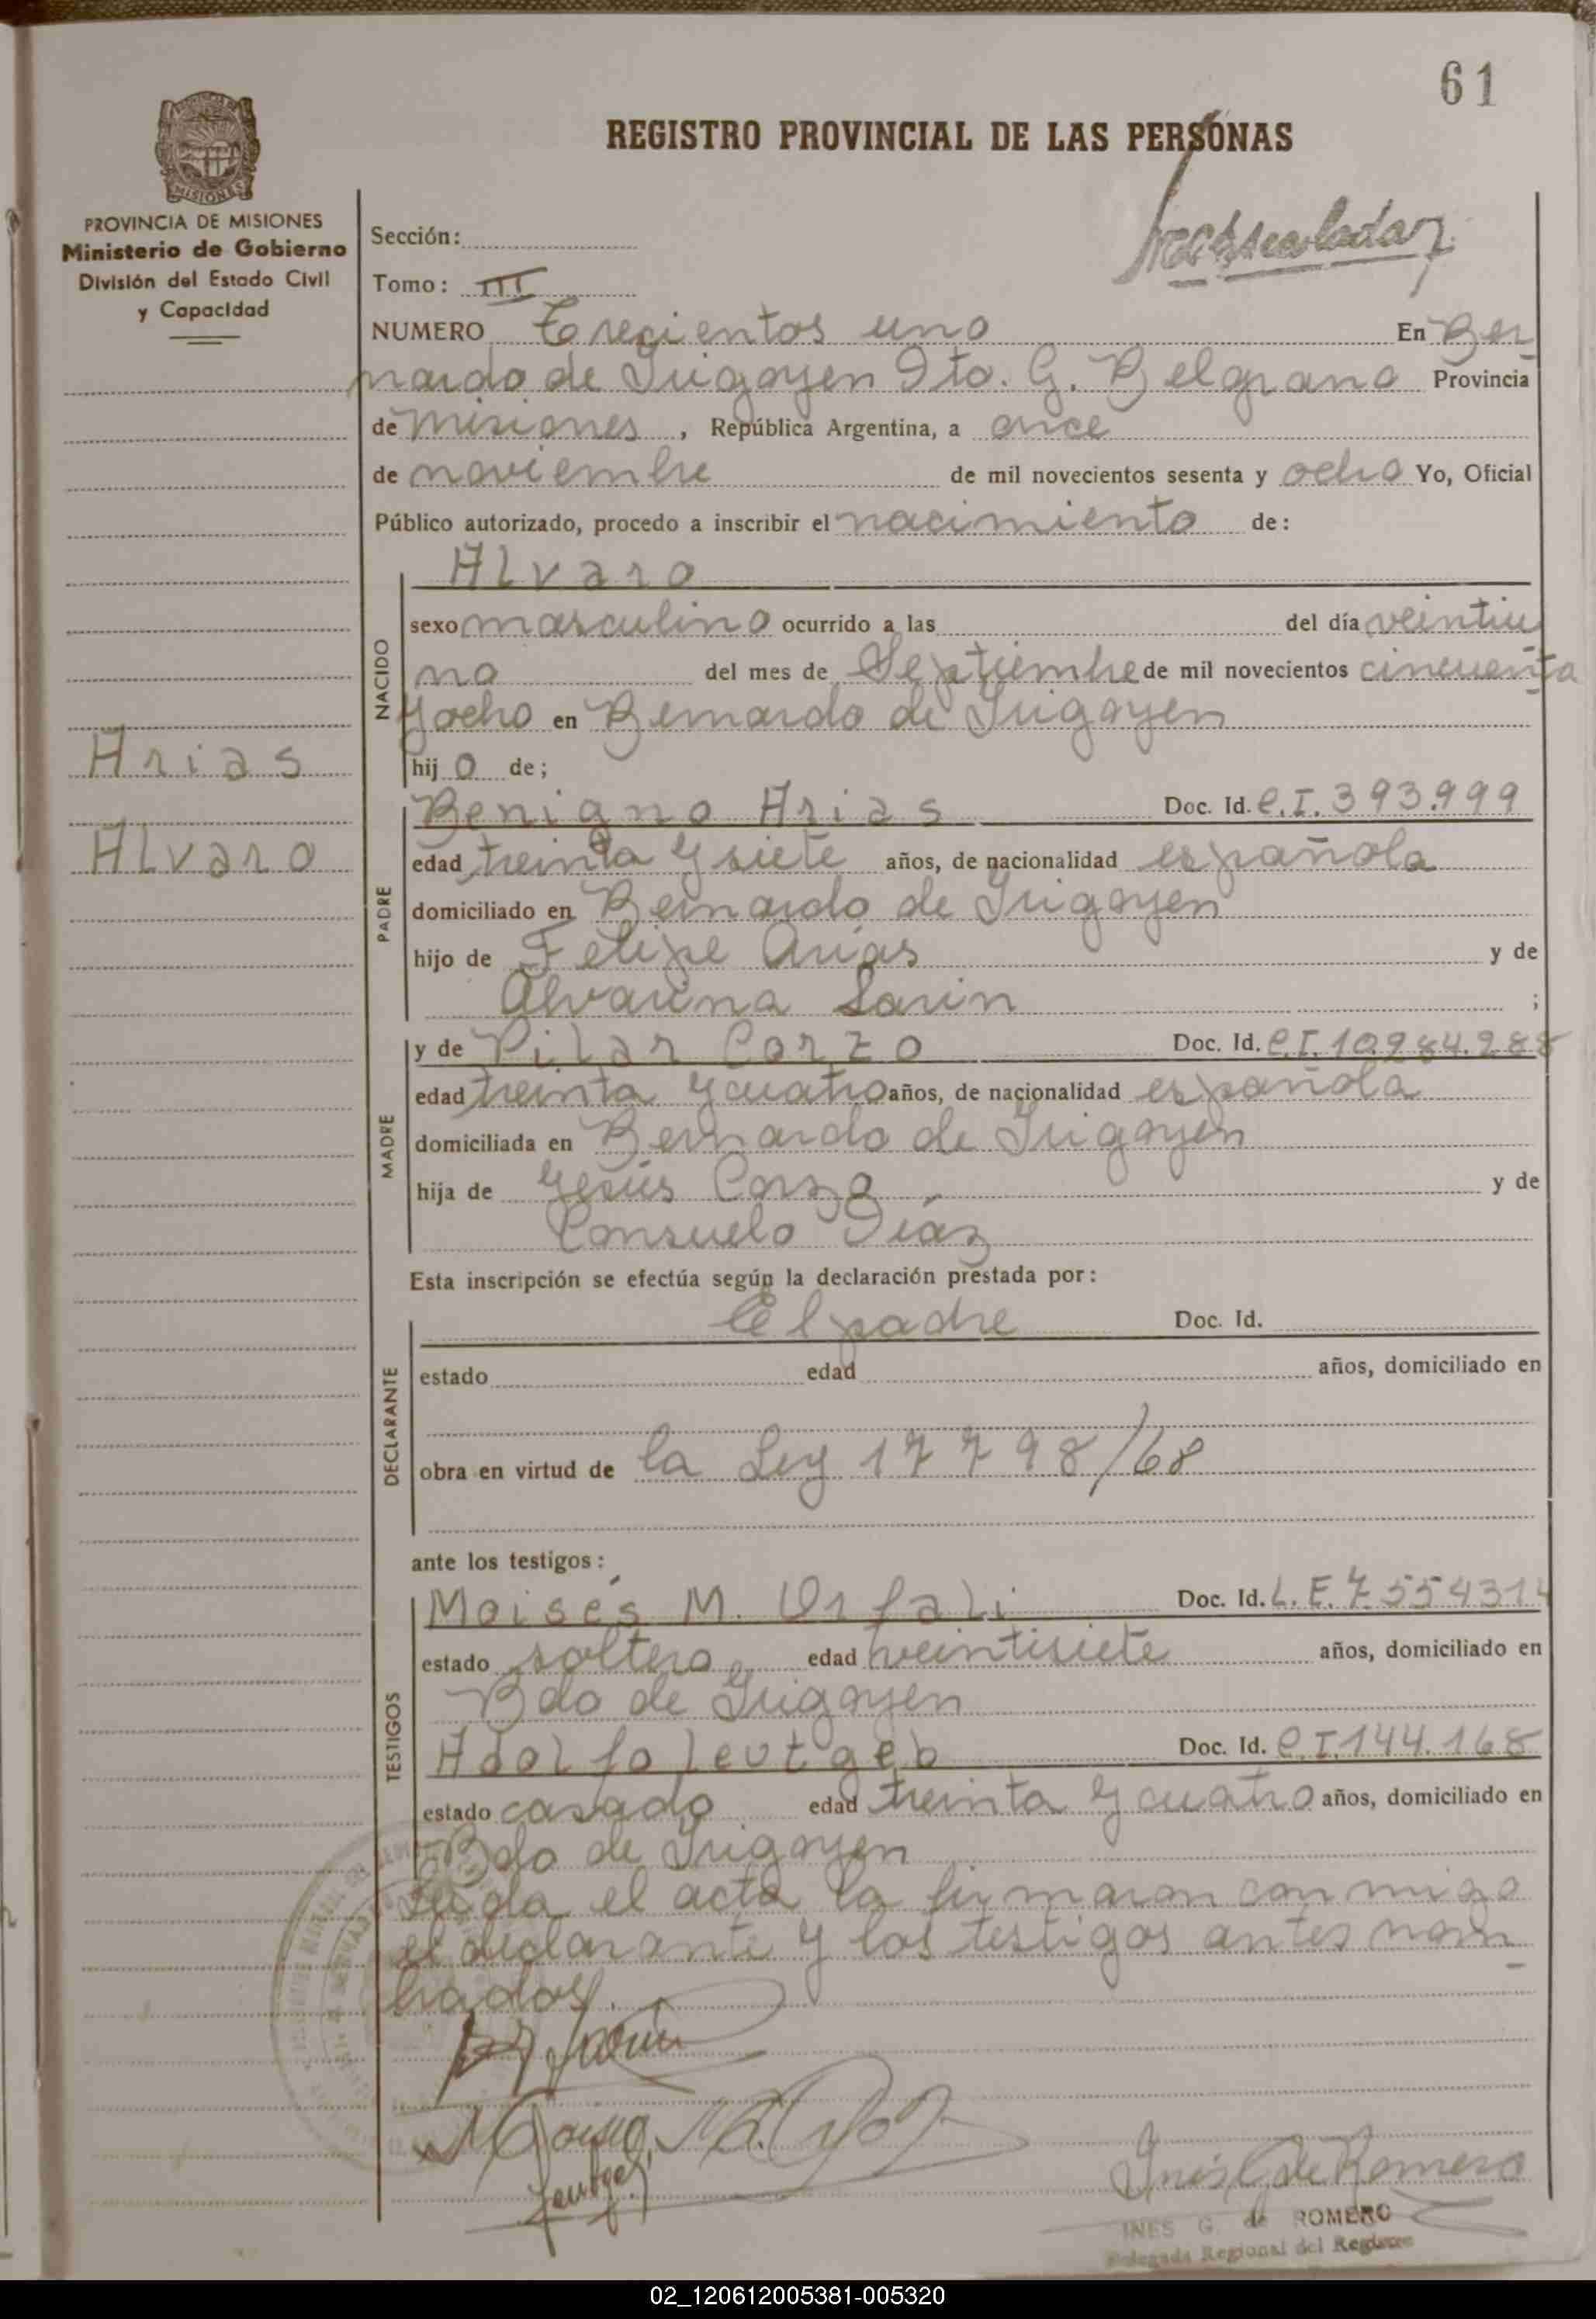 61
REGISTRO PROVINCIAL DE LAS PERSONAS
MISIONES
PROVINCIA DE MISIONES
Ministerio de Gobierno
División del Estado Civil
y Capacidad
Sección:
Tomo: III
NUMERO Trecientos uno En Ber
nardo de Irigoyen Dto. G. Belgrano Provincia
de Misiones, República Argentina, a once
de noviembre de mil novecientos sesenta y ocho Yo, Oficial
Público autorizado, procedo a inscribir el nacimiento de:
Alvaro
NACIDO
sexo masculino ocurrido a las del día veintiu
no del mes de Septiembre de mil novecientos cincuenta
y ocho en Bernardo de Irigoyen
hij o de;
Arias
Alvaro
PADRE
Benigno Arias Doc. Id. C.I. 393.999
edad treinta y siete años, de nacionalidad española
domiciliado en Bernardo de Irigoyen
hijo de Felipe Arias y de
Alvarina Sarin ;
MADRE
y de Pilar Corzo Doc. Id. C.I. 10.984.288
edad treinta y cuatro años, de nacionalidad española
domiciliada en Bernardo de Irigoyen
hija de Jesús Corzo y de
Consuelo Díaz
Esta inscripción se efectúa según la declaración prestada por:
DECLARANTE
El padre Doc. Id.
estado edad años, domiciliado en
obra en virtud de la Ley 17798/68
ante los testigos:
TESTIGOS
Moisés M. Orfali Doc. Id. L.E. 7554314
estado soltero edad veintisiete años, domiciliado en
Bdo de Irigoyen
Adolfo Leutgeb Doc. Id. C.I. 144.168
estado casado edad treinta y cuatro años, domiciliado en
Bdo de Irigoyen
Leida el acta la firmaron con migo
el declarante y los testigos antes nom
brados.
Leutgeb
Inés G de Romero
INES G. de ROMERO
Delegada Regional del Registro
02_120612005381-005320